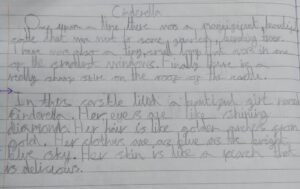 Cinderella
Once upon a time there was a magnificent, beautiful
castle that was next to some sparkly, bending trees.
There was also a tiny, small lamp that was in one
of the smallest windows. Finally there is a
really sharp spire on the roof of the castle.
In this castle lived a beautiful girl named
Cinderella. Her eyes are like shining
diamonds. Her hair is like golden made from
gold. Her clothes are as blue as the bright
blue sky. Her skin is like a peach that
is delicious.